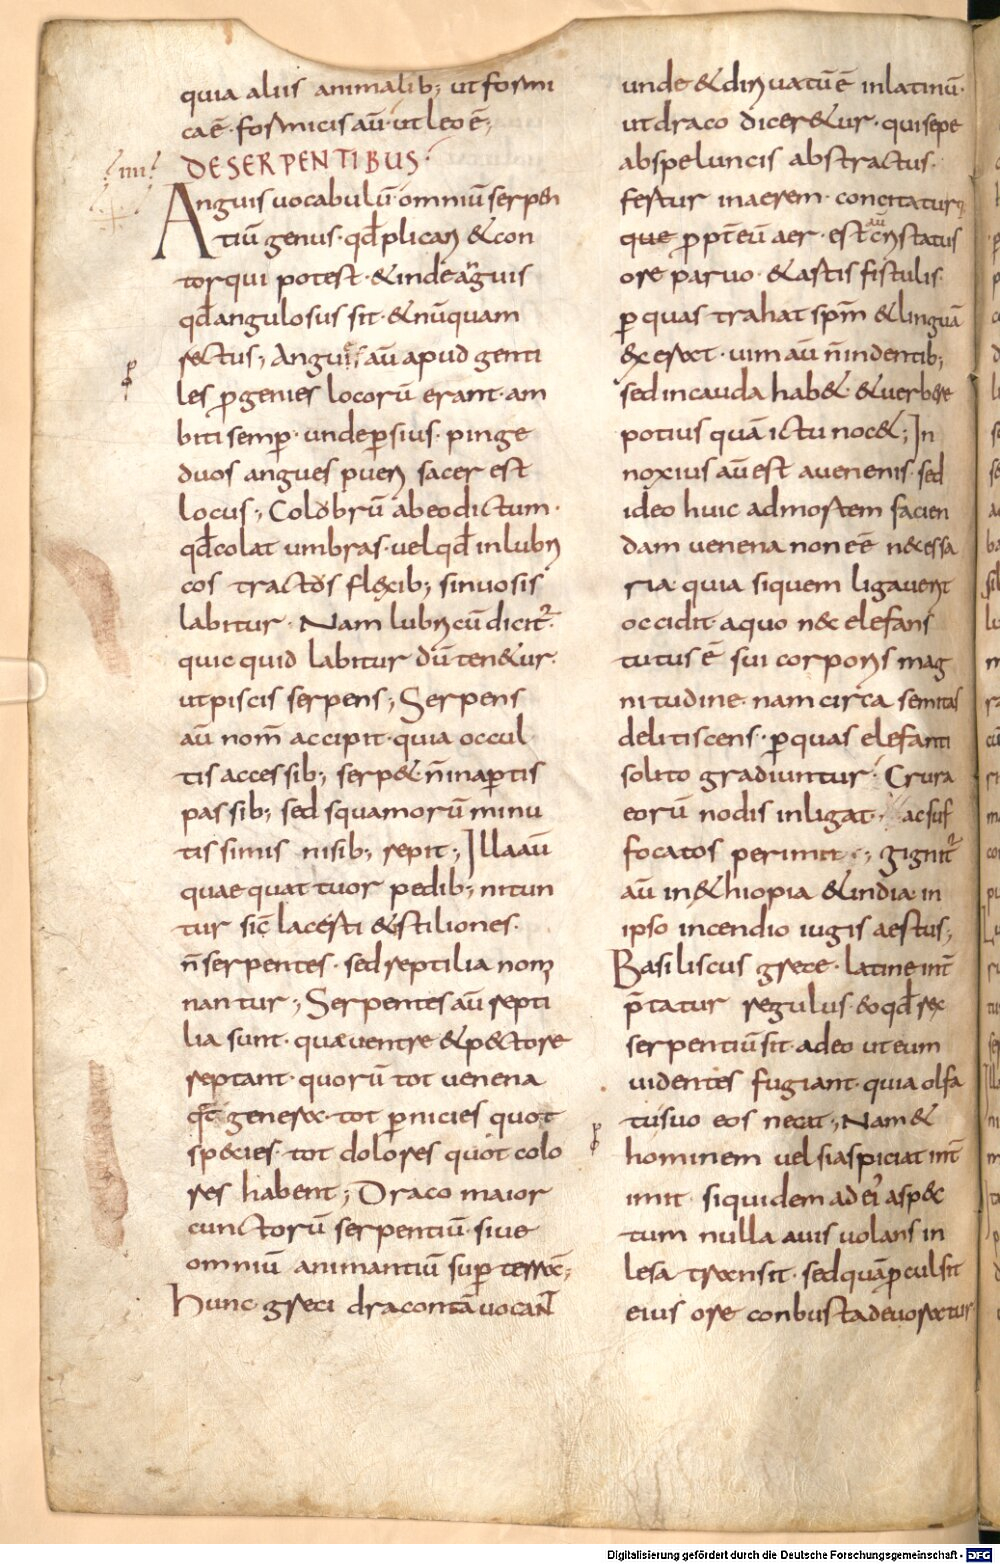 quia aliis animalib; ut formi
caē· formicis aū· ut leo ē;
·IIII· DE SERPENTIBUS·
Anguis uocabulū· omniū serpen
tiū genus· qđ plicari &con
torqui potest· &inde anguis
qđ angulosus sit· &nūquam
rectus; Anguis aū apud genti
les ꝓ genies locorū erant· am
biti semꝑ· unde ꝑsius· pinge
duos angues pueri sacer est
locus; Colobrū abeo dictum·
qđ colat umbras· uel qđ inlubri
cos tractos flexib; sinuosis
labitur· Nam lubricū dicit᷑
quic quid labitur dū ten&ur·
ut piscis serpens; Serpens
aū nom̄ accipit· quia occul
tis accessib; serp&· n̄ inaꝑtis
passib; sed squamorū minu
tissimis nisib; repit; Illa aū
quae quattuor pedib; nitun
tur sic̄ lacesti &stiliones·
n̄ serpentes· sed reptilia nomi
nantur; Serpentes aū repti
lia sunt· quae uentre &pectore
reptant· quorū tot uenena
qt̄ genera· tot ꝑnicies quot
sp&cies· tot dolores quot colo
res habent; Draco maior
cunctorū serpentiū· siue
omniū animantiū suꝑ terrā;
Hunc greci dracontā uocant
unde &diriuatū ē inlatinū·
ut draco dicer&ur· qui sepe
abspeluncis abstractus·
fertur inaerem· concitaturq;
que ꝓpt̄ eū aer· est aū cristatus
ore paruo· &artis fistulis·
ꝑ quas trahat spm̄ &linguā
&xerat· uim aū n̄ indentib;
sed incauda hab&· &uerbere
potius quā ictu noc&; In
noxius aū est auenenis· sed
ideo huic admortem facien
dam uenena non eē n&cessa
ria· quia siquem ligauerit
occidit· aquo n&c elefans
tutus ē sui corporis mag
nitudine· nam circa semitas
delitiscens· ꝑ quas elefanti
solito gradiuntur· Crura
eorū nodis inligat· ac suf
focatos perimit; gignit᷑
aū in&hiopia &india· in
ipso incendio iugis aestus;
Basiliscus grece· latine int̄
p̄tatur regulus· eo qđ rex
serpentiū sit· adeo ut eum
uidentes fugiant· quia olfa
tu suo eos necat; Nam &
hominem uel si aspiciat int̄
imit· siquidem ad ei᷒ asp&c
tum nulla auis uolans in
lesa transit· sed quā ꝓcul sit
eius ore conbusta deuoratur
Digitalisierung gefördert durch die Deutsche Forschungsgemeinschaft - DFG